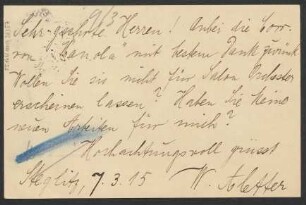 9/3
Sehr geehrte Herren! Anbei die Cor-
von "Kanola" mit bestem Dank zurück
Wollen Sie sie nicht für Salon Orchester
erscheinen lassen? Haben Sie keine
neuen Arbeiten für mich?
Hochachtungsvoll grüsst
Steglitz, 7.3.15 W.